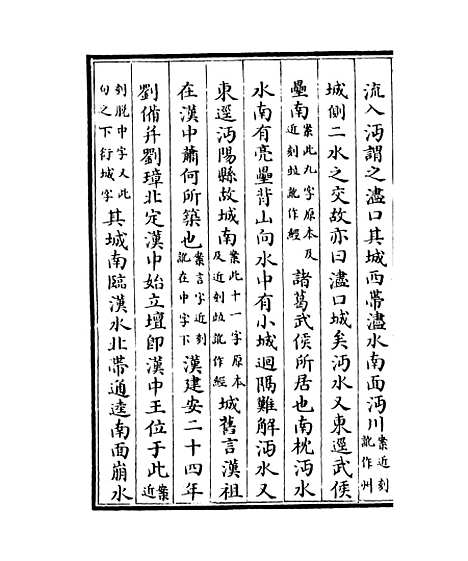 流入沔謂之瀘口其城西帶瀘水南面沔川案近刻訛作州
城側二水之交故亦曰瀘口城矣沔水又東逕武侯
壘南案此九字原本及近刻竝訛作經諸葛武侯所居也南枕沔水
水南有亮壘背山向水中有小城迴隔難解沔水又
東逕沔陽縣故城南案此十一字原本及近刻竝訛作經城舊言漢祖
在漢中蕭何所築也案言字近刻訛在中字下漢建安二十四年
劉備并劉璋北定漢中始立壇即漢中王位于此案近
刻脫中字又此句之下衍城字其城南臨漢水北帶通逵南面崩水